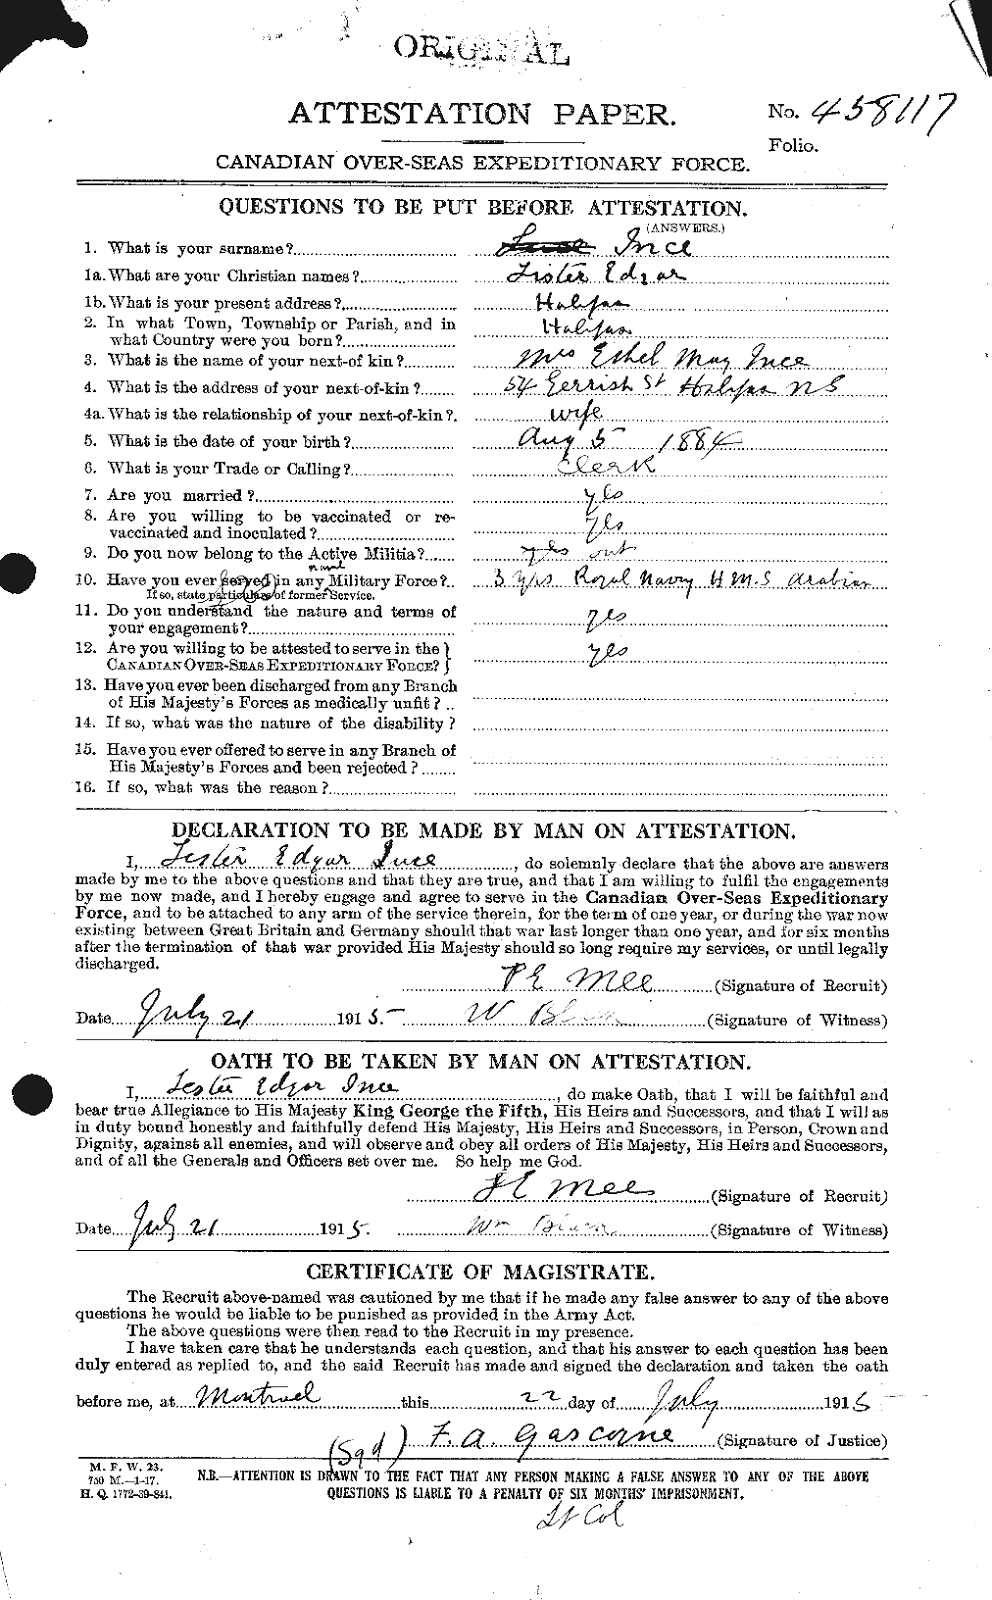 ORIGINAL
ATTESTATION PAPER.
No. 458117
Folio.
CANADIAN OVER-SEAS EXPEDITIONARY FORCE.
QUESTIONS TO BE PUT BEFORE ATTESTATION.
(ANSWERS.)
1. What is your surname? Ince
1a. What are your Christian names? Lister Edgar
1b. What is your present address? Halifax
2. In what Town, Township or Parish, and in
what Country were you born? Halifax
3. What is the name of your next-of kin? Mrs Ethel May Ince
4. What is the address of your next-of-kin? 54 Gerrish St Halifax NS
4a. What is the relationship of your next-of-kin? wife
5. What is the date of your birth? Aug 5 1884
6. What is your Trade or Calling? Clerk
7. Are you married? yes
8. Are you willing to be vaccinated or re-
vaccinated and inoculated? yes
9. Do you now belong to the Active Militia? yes out
10. Have you ever served in any Military Force? 3 yrs. Royal Navy H M.S Arabian
If so, state particulars of former Service.
11. Do you understand the nature and terms of
your engagement? yes
12. Are you willing to be attested to serve in the
CANADIAN OVER-SEAS EXPEDITIONARY FORCE? yes
13. Have you ever been discharged from any Branch
of His Majesty's Forces as medically unfit?
14. If so, what was the nature of the disability?
15. Have you ever offered to serve in any Branch of
His Majesty's Forces and been rejected?
16. If so, what was the reason?
DECLARATION TO BE MADE BY MAN ON ATTESTATION.
I, Lester Edgar Ince, do solemnly declare that the above are answers
made by me to the above questions and that they are true, and that I am willing to fulfil the engagements
by me now made, and I hereby engage and agree to serve in the Canadian Over-Seas Expeditionary
Force, and to be attached to any arm of the service therein, for the term of one year, or during the war now
existing between Great Britain and Germany should that war last longer than one year, and for six months
after the termination of that war provided His Majesty should so long require my services, or until legally
discharged.
Mee (Signature of Recruit)
Date July 21 1915. W (Signature of Witness)
OATH TO BE TAKEN BY MAN ON ATTESTATION.
I, Lester Edgar Ince, do make Oath, that I will be faithful and
bear true Allegiance to His Majesty King George the Fifth, His Heirs and Successors, and that I will as
in duty bound honestly and faithfully defend His Majesty, His Heirs and Successors, in Person, Crown and
Dignity, against all enemies, and will observe and obey all orders of His Majesty, His Heirs and Successors,
and of all the Generals and Officers set over me. So help me God.
Mee (Signature of Recruit)
Date July 21 1915. Wm (Signature of Witness)
CERTIFICATE OF MAGISTRATE.
The Recruit above-named was cautioned by me that if he made any false answer to any of the above
questions he would be liable to be punished as provided in the Army Act.
The above questions were then read to the Recruit in my presence.
I have taken care that he understands each question, and that his answer to each question has been
duly entered as replied to, and the said Recruit has made and signed the declaration and taken the oath
before me, at Montreal this 22 day of July 1915
(Sgd) F. A. Gascoine (Signature of Justice)
M. F. W. 23.
750 M.—1-17.
H. Q. 1772-39-841.
N.B.—ATTENTION IS DRAWN TO THE FACT THAT ANY PERSON MAKING A FALSE ANSWER TO ANY OF THE ABOVE
QUESTIONS IS LIABLE TO A PENALTY OF SIX MONTHS' IMPRISONMENT.
Lt Col